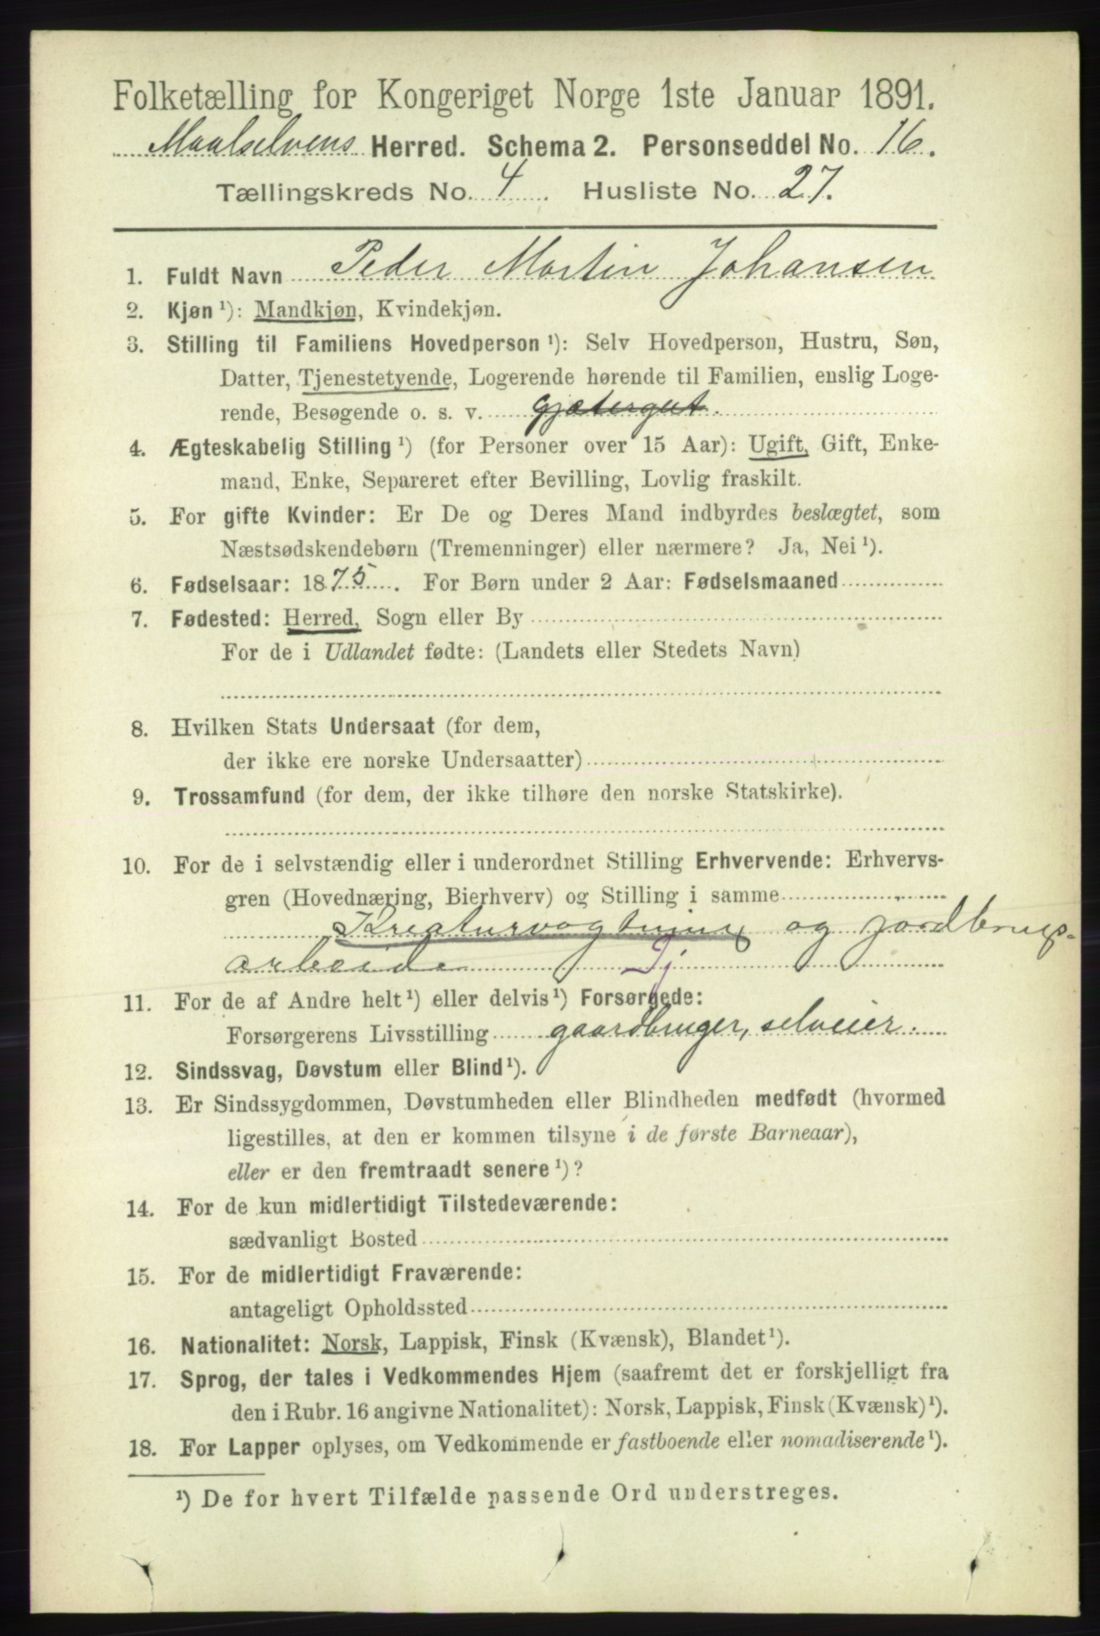 Folketælling for Kongeriget Norge 1ste Januar 1891.
Maalselvens Herred. Schema 2. Personseddel No. 16.
Tællingskreds No. 4. Husliste No. 27.
1. Fuldt Navn Peder Martin Johansen
2. Kjøn ¹): Mandkjøn, Kvindekjøn.
3. Stilling til Familiens Hovedperson ¹): Selv Hovedperson, Hustru, Søn,
Datter, Tjenestetyende, Logerende hørende til Familien, enslig Loge-
rende, Besøgende o. s. v. gjætergut.
4. Ægteskabelig Stilling ¹) (for Personer over 15 Aar): Ugift, Gift, Enke-
mand, Enke, Separeret efter Bevilling, Lovlig fraskilt.
5. For gifte Kvinder: Er De og Deres Mand indbyrdes beslægtet, som
Næstsødskendebørn (Tremenninger) eller nærmere? Ja, Nei ¹).
6. Fødselsaar: 1875. For Børn under 2 Aar: Fødselsmaaned
7. Fødested: Herred, Sogn eller By
For de i Udlandet fødte: (Landets eller Stedets Navn)
8. Hvilken Stats Undersaat (for dem,
der ikke ere norske Undersaatter)
9. Trossamfund (for dem, der ikke tilhøre den norske Statskirke).
10. For de i selvstændig eller i underordnet Stilling Erhvervende: Erhvervs-
gren (Hovednæring, Bierhverv) og Stilling i samme
Kreaturvogtning og jordbrugs-
arbeide Tj
11. For de af Andre helt ¹) eller delvis ¹) Forsørgede:
Forsørgerens Livsstilling gaardbruger, selveier.
12. Sindssvag, Døvstum eller Blind ¹).
13. Er Sindssygdommen, Døvstumheden eller Blindheden medfødt (hvormed
ligestilles, at den er kommen tilsyne i de første Barneaar),
eller er den fremtraadt senere ¹)?
14. For de kun midlertidigt Tilstedeværende:
sædvanligt Bosted
15. For de midlertidigt Fraværende:
antageligt Opholdssted
16. Nationalitet: Norsk, Lappisk, Finsk (Kvænsk), Blandet ¹).
17. Sprog, der tales i Vedkommendes Hjem (saafremt det er forskjelligt fra
den i Rubr. 16 angivne Nationalitet): Norsk, Lappisk, Finsk (Kvænsk) ¹).
18. For Lapper oplyses, om Vedkommende er fastboende eller nomadiserende ¹).
¹) De for hvert Tilfælde passende Ord understreges.